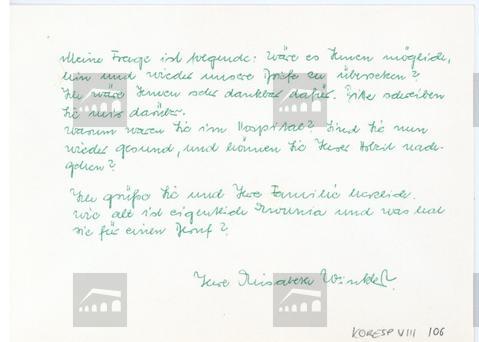 Meine Frage ist folgende: Wäre es Ihnen möglich,
hin und wieder unsere Briefe zu übersetzen?
Ich wäre Ihnen sehr dankbar dafür. Bitte schreiben
Sie mir darüber.
Warum waren Sie im Hospital? Sind Sie nun
wieder gesund, und können Sie Ihrer Arbeit nach-
gehen?
Ich grüße Sie und Ihre Familie herzlich.
Wie alt ist eigentlich und was hat
sie für einen Beruf?
Ihre Elisabeth Winkler.
KORESP VIII /06